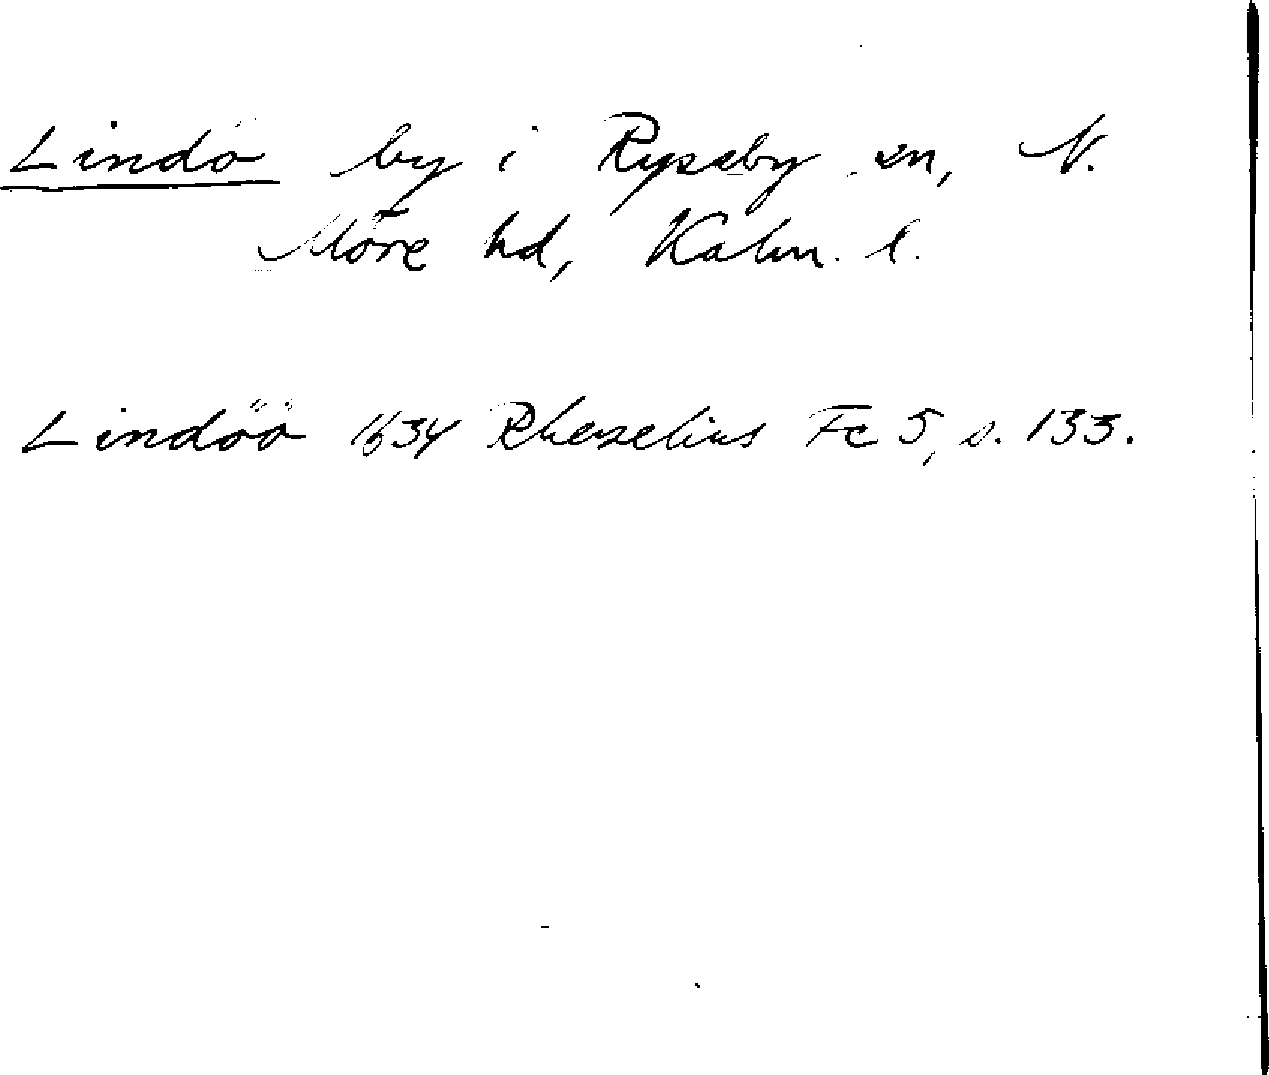 Lindö by i Ryssby sn, N.
Möre hd, Kalm. l.
Lindöö 1634 Rhezelius Fc 5, s. 133.